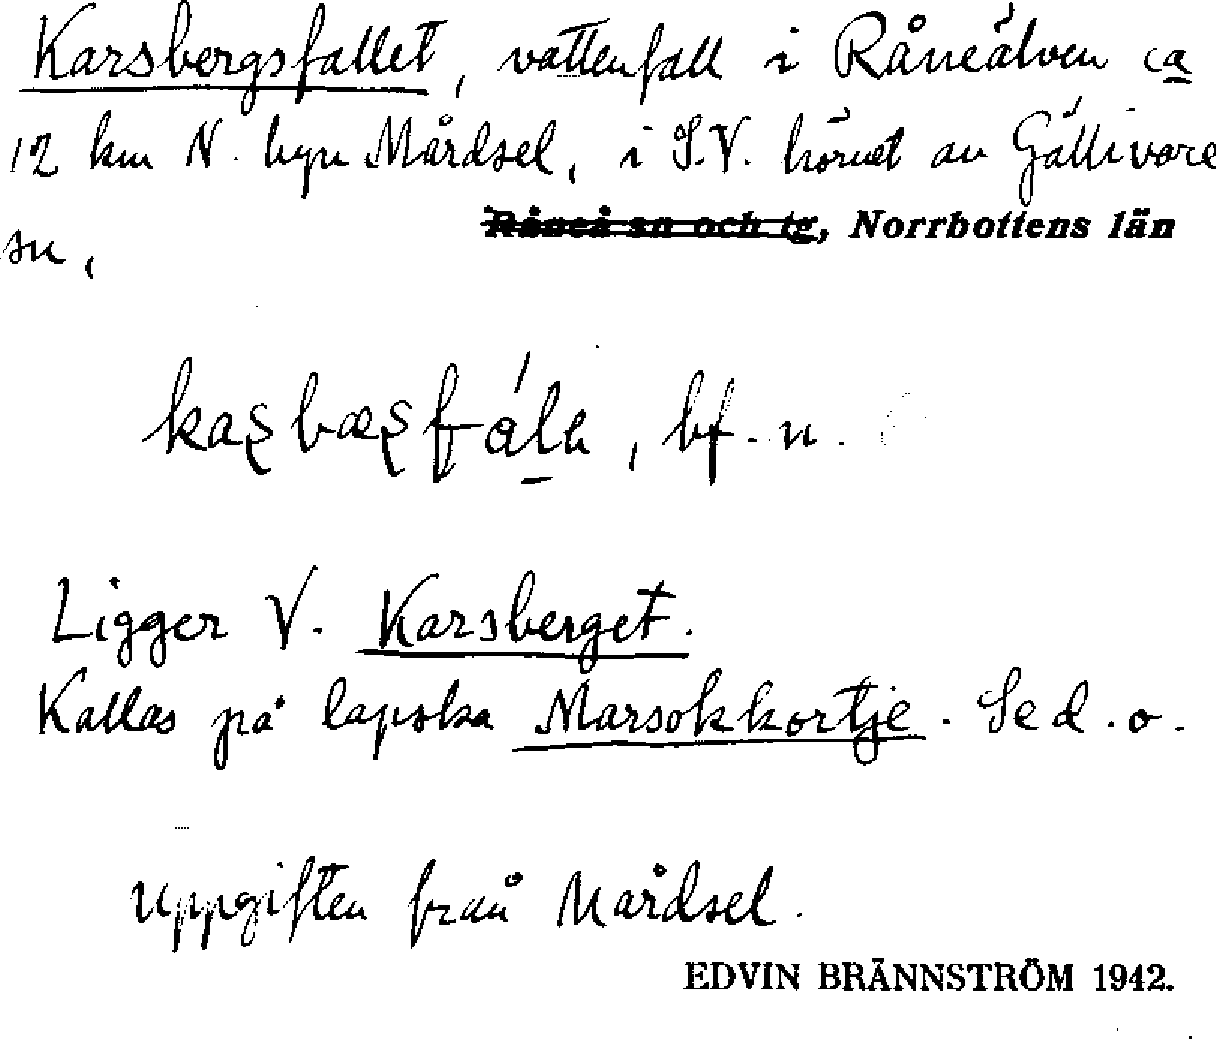 Karsbergsfallet, vattenfall i Råneälven ca
12 km N. byn Mårdsel, i S.V. hörnet av Gällivare
sn,
Råneå sn och tg, Norrbottens län
bf. n.
Ligger V. Karsberget.
Kallas på lapska Marsokkortje. Se d. o.
Uppgiften från Mårdsel.
EDVIN BRÄNNSTRÖM 1942.